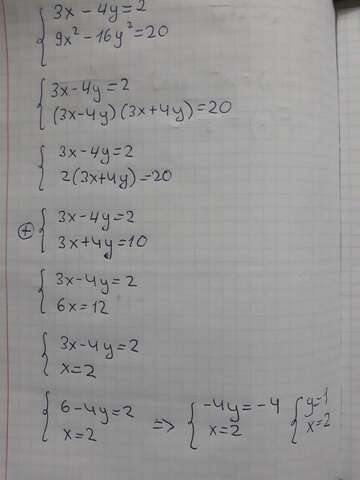 { 3x - 4y = 2
9x² - 16y² = 20
{ 3x - 4y = 2
(3x - 4y) (3x + 4y) = 20
{ 3x - 4y = 2
2(3x + 4y) = 20
⊕ { 3x - 4y = 2
3x + 4y = 10
{ 3x - 4y = 2
6x = 12
{ 3x - 4y = 2
x = 2
{ 6 - 4y = 2 => { -4y = -4 { y = 1
x = 2 x = 2 x = 2